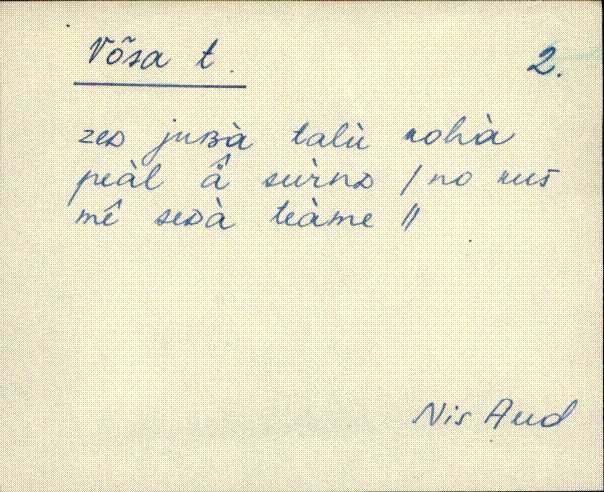 Võsa t.
2.
zeᴅ juʙà talù kohà
peàl â surnᴅ / no kus
mê seᴅà teàme //
Nis Aud